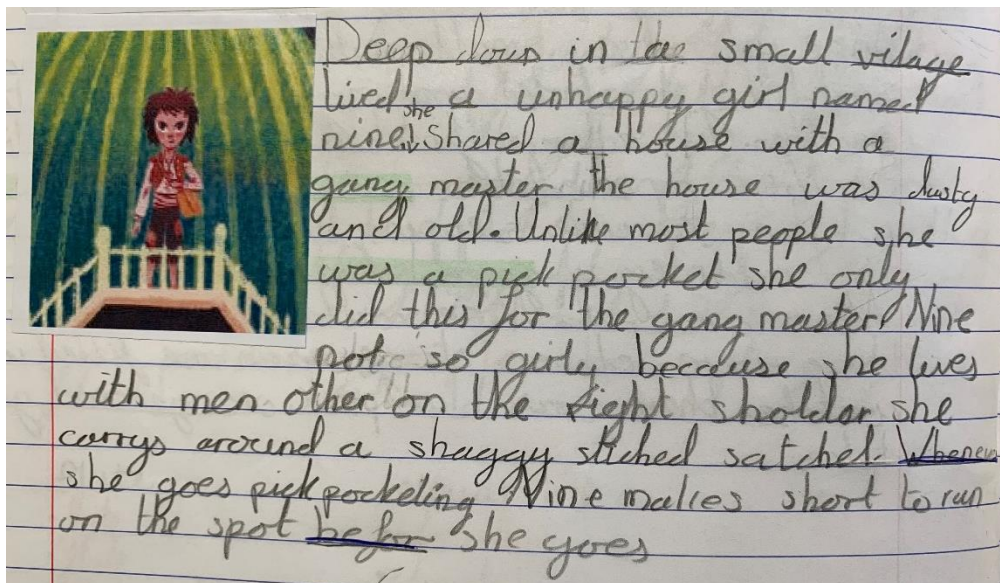 Deep down in the small vilage
lived a unhappy girl named
nine. she shared a house with a
gang master the house was dusty
and old. Unlike most people she
was a pick pocket she only
did this for the gang master Nine
not so girly because she lives
with men other on the right sholder she
carrys around a shaggy stiched satchel. Whenever
she goes pick pocketing Nine makes short to run
on the spot before she goes